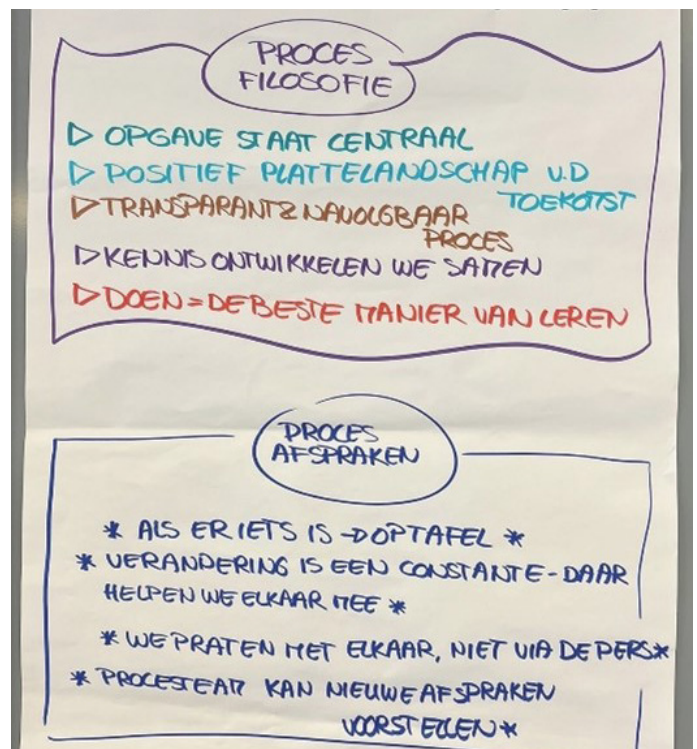 PROCES
FILOSOFIE
▷ OPGAVE STAAT CENTRAAL
▷ POSITIEF PLATTELANDSCHAP V.D
TOEKOMST
▷ TRANSPARANT & NAVOLGBAAR
PROCES
▷ KENNIS ONTWIKKELEN WE SAMEN
▷ DOEN = DE BESTE MANIER VAN LEREN
PROCES
AFSPRAKEN
* ALS ER IETS IS → OP TAFEL *
* VERANDERING IS EEN CONSTANTE - DAAR
HELPEN WE ELKAAR MEE *
* WE PRATEN MET ELKAAR, NIET VIA DE PERS *
* PROCESTEAM KAN NIEUWE AFSPRAKEN
VOORSTELLEN *